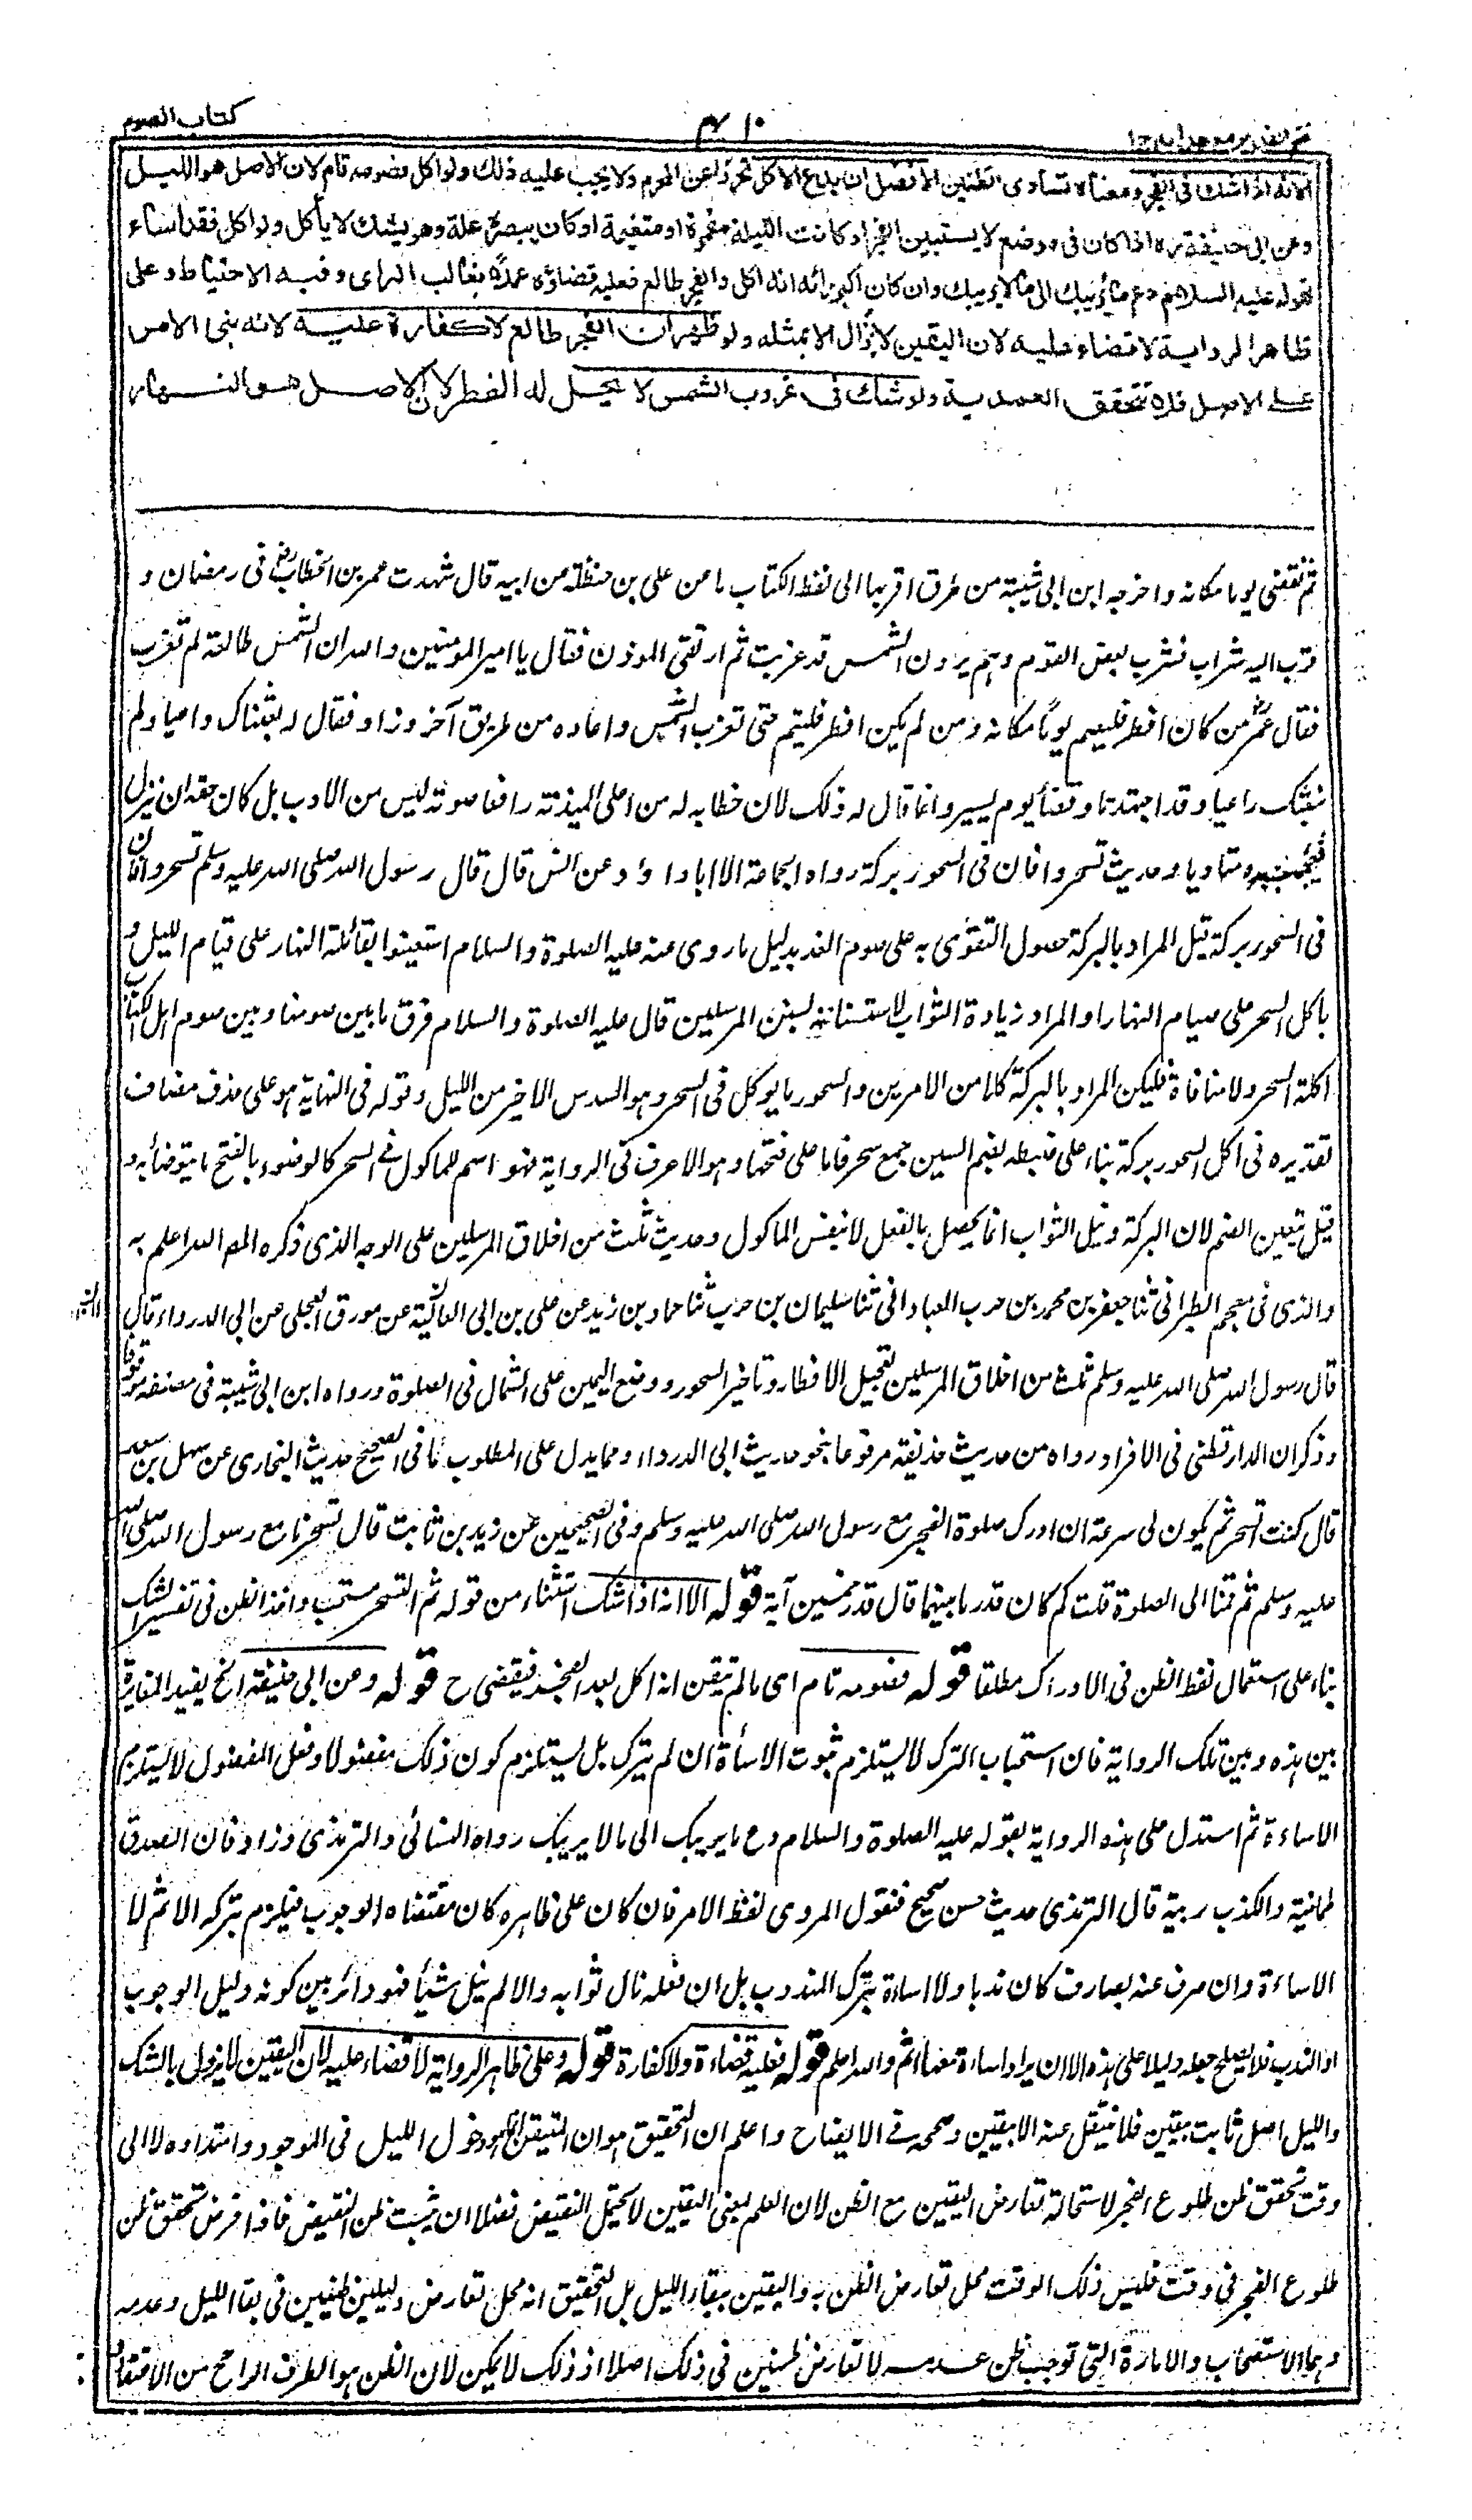 فتح القدير مع هدايه ج١ ٣١٠ كتاب الصوم
الا انه اذا شك فى الفجر ومعناه تساوى الظنين الافضل ان يدع الاكل تحرزا عن المحرم ولا يجب عليه ذلك ولو اكل فصومه تام لان الاصل هو الليل
وعن ابى حنيفة ره اذا كان فى موضع لا يستبين الفجر او كانت الليلة مقمرة او متغيمة او كان ببصره علة وهو يشك لا يأكل ولو اكل فقد اساء
لقوله عليه السلام دع ما يريبك الى مالا يريبك وان كان اكبر رأيه انه اكل والفجر طالع فعليه قضاؤه عملا بغالب الراى وفيه الاحتياط وعلى
ظاهر الرواية لا قضاء عليه لان اليقين لا يزال الا بمثله ولو ظهر ان الفجر طالع لا كفارة عليه لانه بنى الامر
على الاصل فلا تتحقق العمدية ولو شك فى غروب الشمس لا يحل له الفطر لان الاصل هو النهار
ثم نقضى يوما مكانه واخرجه ابن ابى شيبة من طرق اقربها الى لفظ الكتاب ما عن على بن حنظلة عن ابيه قال شهدت عمر بن الخطاب رض فى رمضان و
قرب اليه شراب فشرب بعض القوم وهم يرون ان الشمس قد غربت ثم ارتقى الموذن فقال يا امير المومنين والله ان الشمس طالعة لم تغرب
فقال عمر من كان افطر فليصم يوما مكانه ومن لم يكن افطر فليتم حتى تغرب الشمس واعاده من طريق آخر وزاد فقال له بعثناك داعيا ولم
نبعثك راعيا وقد اجتهدنا وقضاء يوم يسير وانما قال له ذلك لان خطابه له من اعلى الميذنة رافعا صوته ليس من الادب بل كان حقه ان ينزل
فيخبره متاديا وحديث تسحروا فان فى السحور بركة رواه الجماعة الا ابا داؤد عن انس قال قال رسول الله صلى الله عليه وسلم تسحروا فان
فى السحور بركة قيل المراد بالبركة حصول التقوى به على صوم الغد بدليل ما روى عنه عليه الصلوة والسلام استعينوا بقائلة النهار على قيام الليل و
باكل السحر على صيام النهار او المراد زيادة الثواب لاستنانه بسنن المرسلين قال عليه الصلوة والسلام فرق ما بين صومنا وبين صوم اهل الكتاب
اكلة السحر ولا منافاة فليكن المراد بالبركة كلا من الامرين والسحور ما يوكل فى السحر وهو السدس الاخير من الليل وقوله فى النهاية هو على حذف مضاف
تقديره فى اكل السحور بركة بناء على ضبطه بضم السين جمع سحر فاما على فتحها وهو الاعرف فى الرواية فهو اسم للماكول فى السحر كالوضوء بالفتح ما يتوضأ به و
قيل يتعين الضم لان البركة ونيل الثواب انما يحصل بالفعل لا بنفس الماكول وحديث ثلث من اخلاق المرسلين على الوجه الذى ذكره المص الله اعلم به
والذى فى معجم الطبرانى ثنا جعفر بن محمد بن حرب العبادانى ثنا سليمان بن حرب ثنا حماد بن زيد عن على بن ابى العالية عن مورق العجلى عن ابى الدرداء قال
قال رسول الله صلى الله عليه وسلم ثلث من اخلاق المرسلين تعجيل الافطار وتاخير السحور ووضع اليمين على الشمال فى الصلوة ورواه ابن ابى شيبة فى مصنفه موقوفا
وذكر ان الدارقطنى فى الافراد رواه من حديث حذيفة مرفوعا بنحو حديث ابى الدرداء ومما يدل على المطلوب ما فى الصحيح حديث البخارى عن سهل بن سعد
قال كنت اتسحر ثم يكون لى سرعة ان ادرك صلوة الفجر مع رسول الله صلى الله عليه وسلم وفى الصحيحين عن زيد بن ثابت قال تسحرنا مع رسول الله صلى الله
عليه وسلم ثم قمنا الى الصلوة قلت كم كان قدر ما بينهما قال قدر خمسين آية قوله الا انه اذا شك استثناء من قوله ثم التسحر مستحب واخذ الظن فى تفسير الشك
بناء على استعمال لفظ الظن فى الادراك مطلقا قوله فصومه تام اى ما لم يتيقن انه اكل بعد الفجر فيقضى ح قوله وعن ابى حنيفة الخ يفيد المغايرة
بين هذه وبين تلك الرواية فان استحباب الترك لا يستلزم ثبوت الاساءة ان لم يترك بل يستلزم كون ذلك مفضولا وفعل المفضول لا يستلزم
الاساءة ثم استدل على هذه الرواية بقوله عليه الصلوة والسلام دع ما يريبك الى ما لا يريبك رواه النسائى والترمذى وزاد فان الصدق
طمانية والكذب ريبة قال الترمذى حديث حسن صحيح فنقول المروى لفظ الامر فان كان على ظاهره كان مقتضاه الوجوب فيلزم بتركه الاثم لا
الاساءة وان صرف عنه بصارف كان ندبا ولا اساءة بترك المندوب بل ان فعله نال ثوابه والا لم ينل شيأ فهو دائر بين كونه دليل الوجوب
او الندب فلا يصلح جعله دليلا على هذه الا ان يراد اساءة معها اثم والله اعلم قوله فعليه قضاءه ولا كفارة قوله وعلى ظاهر الرواية لا قضاء عليه لان اليقين لا يزول بالشك
والليل اصل ثابت بيقين فلا ينتقل عنه الا بيقين وصححه فى الايضاح واعلم ان التحقيق هو ان المتيقن انما هو دخول الليل فى الوجود وامتداده لا الى
وقت تحقق ظن طلوع الفجر لاستحالة تعارض اليقين مع الظن لان العلم بمعنى اليقين لا يحتمل النقيض فضلا ان يثبت ظن النقيض فاذا فرض تحقق ظن
طلوع الفجر فى وقت فليس ذلك الوقت محل تعارض الظن به واليقين ببقاء الليل بل التحقيق انه محل تعارض دليلين ظنيين فى بقا الليل وعدمه
وهما الاستصحاب والامارة التى توجب ظن عدمه لا تعارض ظنين فى ذلك اصلا اذ ذلك لا يمكن لان الظن هو الطرف الراجح من الاعتقاد